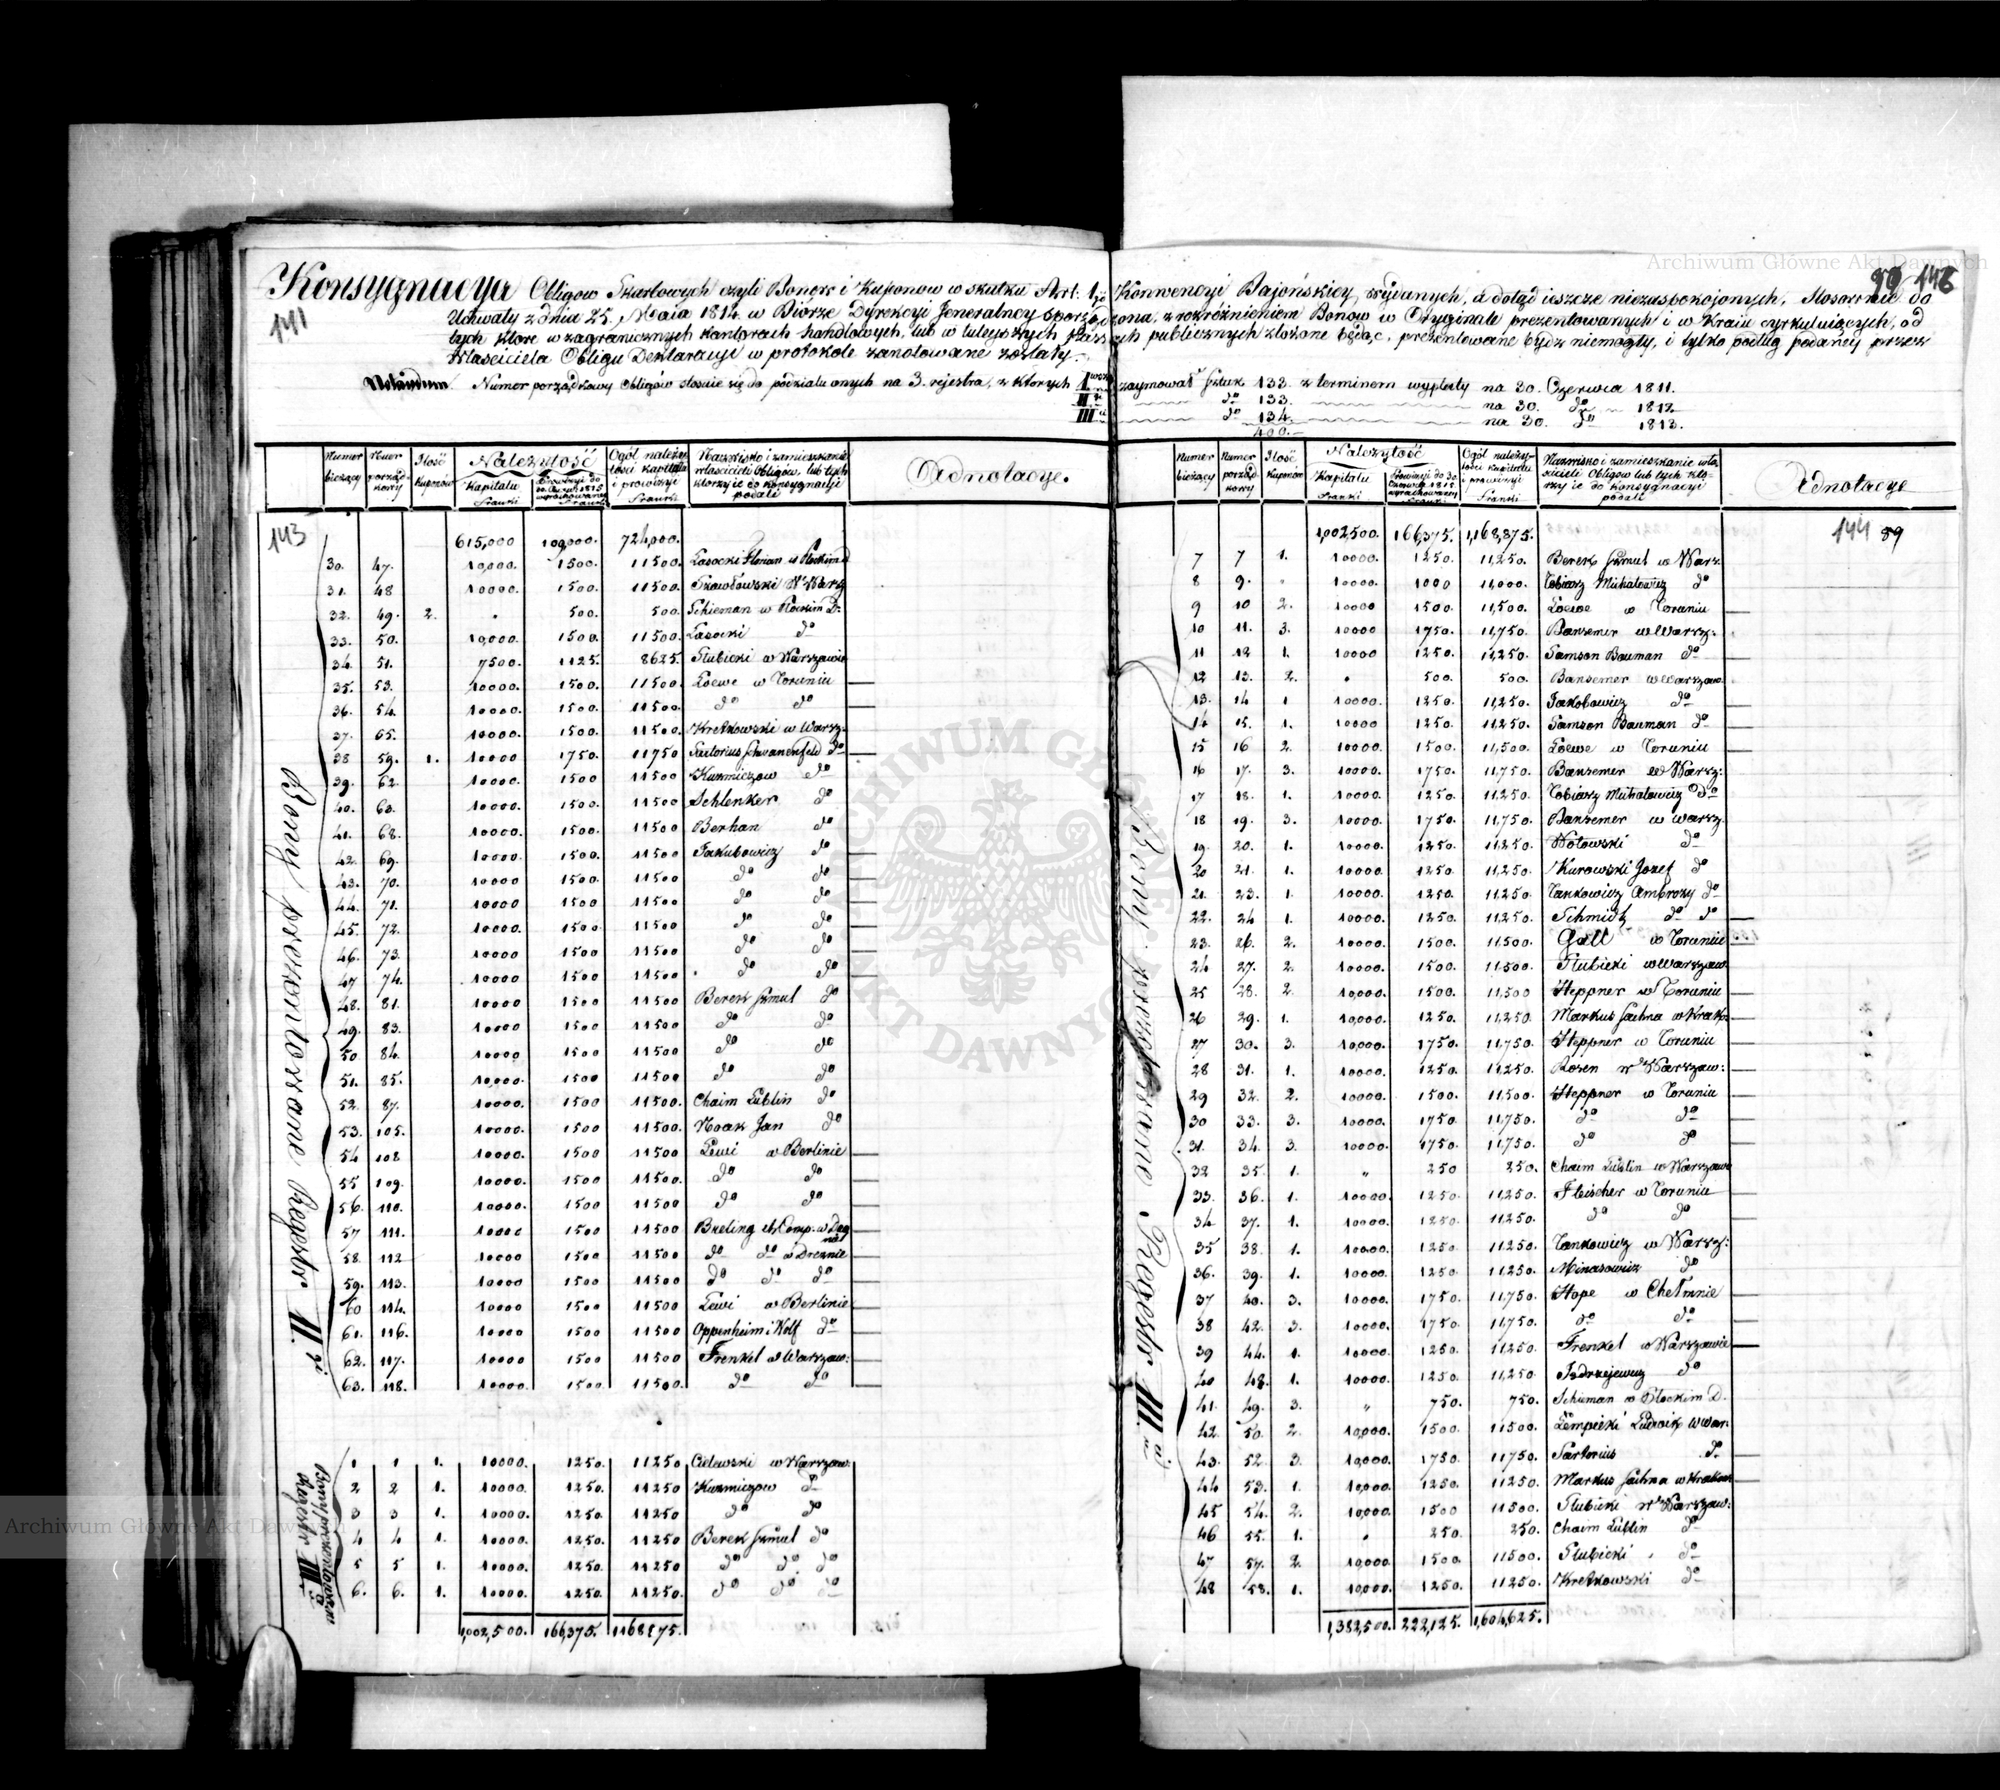 Archiwum Główne Akt Dawnych
99 146
Konsygnacya Obligow Skarbowych czyli Bonow i Kuponow w skutku Art: 1go Konwencyi Bajońskiey wydanych, a dotąd ieszcze niezaspokojonych, Stosownie do
141
Uchwały z dnia 25. Maia 1814. w Biórze Dyrekcyi Jeneralney sporządzona, z rozróżnieniem Bonow w Oryginale prezentowanych i w Kraiu cyrkuluiących, od
tych ktore w zagranicznych kantorach handlowych, lub w tuteyszych kassach publicznych złożone będąc, prezentowane bydz niemogły, i tylko podług podaney przez
Właściciela Obligu Deklaracyi w protokole zanotowane zostały.
Notandum. Numer porządkowy obligów stosuie się do podziału onych na 3. rejestra, z ktorych I wszy zaymował Sztuk 133. z terminem wypłaty na 30. Czerwca 1811.
II gi do 133. na 30. do 1812
III ci do 134. na 30. do 1813.
400.
Numer bieżący Nuer porządkowy Ilość kuponów Należytość Kapitału Franki Prowizyi do Franki Ogól należytości kapitału i prowizyi Franki Nazwisko i zamieszkanie właścicieli Obligów, lub tych ktorzy ie do konsygnacyi podali Adnotacye.
143
615,000 109,000. 724,000.
Bony prezentowane Regestr II gi
30. 47. 10,000. 1500. 11500. Lasocki Florian w Płockim D
31. 48 10000. 1500. 11500. Szawłowski w Warsz
32. 49. 2. 500. 500. Schieman w Płockim D:
33. 50. 10,000. 1500. 11500. Lasocki do
34. 51. 7500. 1125. 8625. Słubicki w Warszawie
35. 53. 10000. 1500. 11500. Loewe w Toruniu
36. 54. 10000. 1500. 11500. do do
37. 65. 10000. 1500. 11500. Kretkowski w Warsz:
38 59. 1. 10000 1750. 11750 Sartorius Schwanenfeld do
39. 62. 10000. 1500 11500 Kuzmiczow do
40. 63. 10000. 1500. 11500 Schlenker do
41. 68. 10000. 1500. 11500 Berhan do
42. 69. 10000. 1500. 11500 Jakubowicz do
43. 70. 10000 1500. 11500 do do
44. 71. 10000 1500. 11500 do do
45. 72. 10000. 1500 11500 do do
46. 73. 10000 1500. 11500 do do
47 74. 10000 1500 11500 do do
48. 81. 10000 1500 11500 Berek Szmul do
49. 83. 10000 1500 11500 do do
50. 84. 10000 1500 11500 do do
51. 85. 10,000. 1500 11500 do do
52. 87. 10000. 1500 11500. Chaim Lublin do
53. 105. 10000. 1500 11500. Noak Jan do
54 108 10000. 1500 11500 Lewi w Berlinie
55 109. 10000. 1500 11500. do do
56. 110. 10000. 1500 11500 do do
57 111. 10000 1500 11500 Breling et Comp: w Drez nie
58. 112 10000 1500 11500 do do w Dreznie
59. 113. 10000 1500 11500 do do do
60 114. 10000 1500 11500 Lewi w Berlinie
61. 116. 10000 1500 11500 Oppenheim i Wolf do
62. 117. 10000 1500 11500 Frenkel w Warszaw:
63. 118. 10000. 1500. 11500. do do
Bony prezentowane Regestr III ci
1 1 1. 10000. 1250. 11250 Cielewski w Warszaw.
2 2 1. 10000. 1250. 11250 Kuzmiczow do
3 3 1. 10000. 1250. 11250 do do
4 4 1. 10000. 1250. 11250 Berek Szmul do
5 5 1. 10000. 1250. 11250 do do do
6. 6. 1. 10000. 1250. 11250. do do do
1,002,500. 166,375. 1168875.
Numer bieżący Numer porządkowy Ilość kuponów Należytość Kapitału Franki Prowizyi do 30 Czerwca 1815 wyrachowaney Franki Ogól należytości kapitału i prowizyi Franki Nazwisko i zamieszkanie właścicieli Obligów lub tych ktorzy ie do Konsygnacyi podali Adnotacye
144 89
1,002,500. 166,375. 1,168,875.
Bony prezentowane Regestr III ci
7 7 1. 10000. 1250. 11,250. Berek Szmul w Warsz.
8 9. 10000. 1000 11,000. Tobiasz Michałowicz do
9 10 2. 10000 1500. 11,500. Loewe w Toruniu
10 11. 3. 10000 1750. 11,750. Bansemer w Warsz:
11 12 1. 10000 1250. 11,250. Samson Bauman do
12 13. 2. 500. 500. Bansemer w Warszaw.
13. 14 1 10000. 1250. 11,250. Jakobowicz do
14 15. 1. 10000 1250. 11,250. Samson Bauman do
15 16 2. 10000. 1500. 11,500. Loewe w Toruniu
16 17. 3. 10000. 1750. 11,750. Bansemer w Warsz:
17 18. 1. 10000. 1250. 11,250. Tobiasz Michałowicz do
18 19. 3. 10000. 1750. 11,750. Bansemer w Warsz.
19. 20. 1. 10000. 1250. 11,250. Wołowski do
20 21. 1. 10000. 1250. 11,250. Kurowski Jozef do
21. 23. 1. 10000. 1250. 11250. Jankowicz Ambrozy do
22. 24 1. 10000. 1250. 11250. Schmidt do do
23. 26. 2. 10000. 1500. 11500. Gall w Toruniu
24 27. 2. 10000. 1500. 11500. Słubicki w Warszaw.
25 28. 2. 10,000. 1500. 11,500 Heppner w Toruniu
26 29. 1. 10,000. 1250. 11,250. Markus Sachna w Krak:
27 30. 3. 10,000. 1750. 11,750. Heppner w Toruniu
28 31. 1. 10000. 1250. 11,250. Rosen w Warszaw:
29 32. 2. 10000. 1500. 11,500. Heppner w Toruniu
30 33. 3. 10000. 1750. 11,750. do do
31. 34. 3. 10000. 1750. 11,750. do do
32 35. 1. " 250 250. Chaim Lublin w Warszawie
33. 36. 1. 10000. 1250. 11,250. Fleischer w Toruniu
34 37. 1. 10000. 1250. 11,250. do do
35 38. 1. 10000. 1250. 11250. Jankowicz w Warsz:
36. 39. 1. 10000. 1250. 11,250. Minasowicz do
37 40. 3. 10000. 1750. 11,750. Hope w Chełmnie
38 42. 3. 10000. 1750. 11,750. do do
39 44. 1. 10000. 1250. 11250. Frenkel w Warszawie
40 48. 1. 10000. 1250. 11,250. Jędrzejewicz do
41. 49. 3. " 750. 750. Schieman w Płockim D.
42. 50. 2. 10,000. 1500. 11500. Łempicki Ludwik w War:
43. 52. 3. 10,000. 1750. 11750. Sartorius do
44 53. 1. 10,000. 1250. 11250. Markus Sachna w Krakow
45 54. 2. 10,000. 1500 11500. Słubicki w Warszaw:
46 55. 1. 250. 250. Chaim Lublin do
47 57. 2. 10,000. 1500. 11500. Słubicki do
48 58. 1. 10,000. 1250. 11250. Kretkowski do
1,382,500. 222,125. 1,604,625.
Archiwum Główne Akt Dawnych
ARCHIWUM GŁÓWNE AKT DAWNYCH